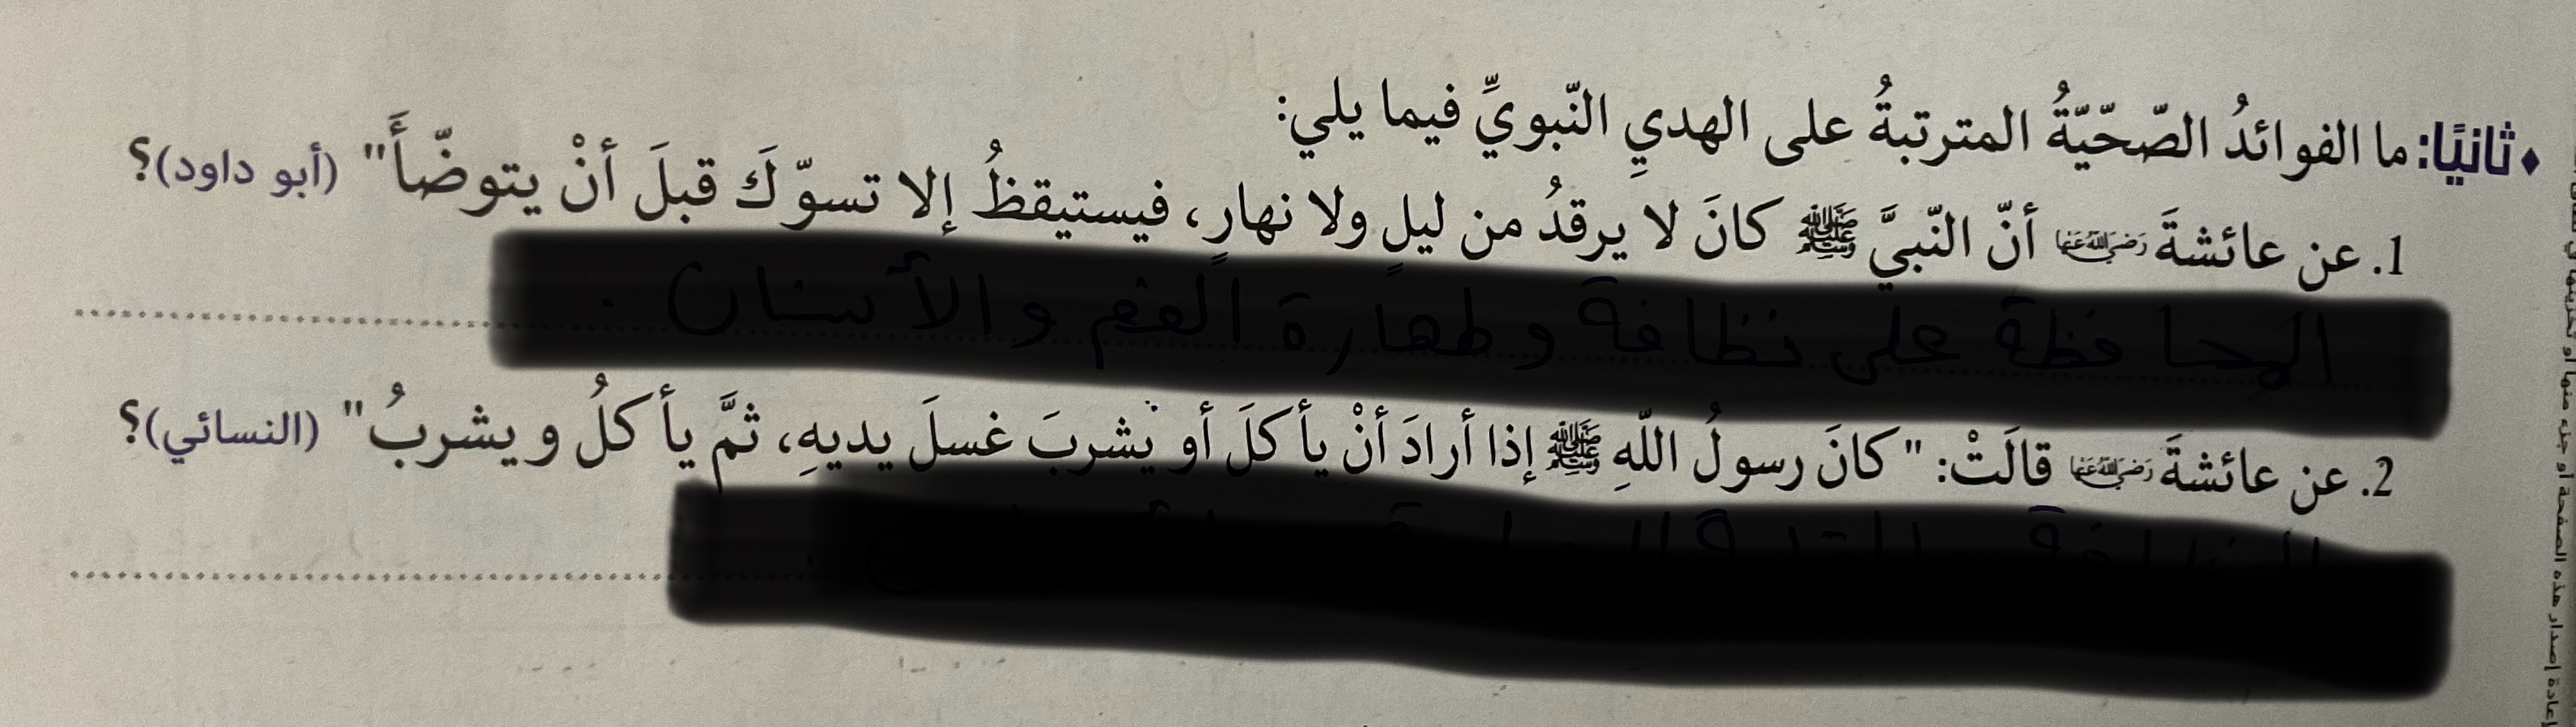 ♦ ثانيًا: ما الفوائدُ الصّحّيّةُ المترتبةُ على الهديِ النّبويِّ فيما يلي:
1. عن عائشةَ رضي الله عنها أنّ النّبيَّ ﷺ كانَ لا يرقدُ من ليلٍ ولا نهارٍ، فيستيقظُ إلا تسوّكَ قبلَ أنْ يتوضّأَ" (أبو داود)؟
المحافظة على نظافة وطهارة الفم والأسنان .
2. عن عائشةَ رضي الله عنها قالَتْ: "كانَ رسولُ اللّهِ ﷺ إذا أرادَ أنْ يأكلَ أو يشربَ غسلَ يديهِ، ثمَّ يأكلُ ويشربُ" (النسائي)؟
النظافة
إعادة إصدار هذه الصفحة أو جزء منها أو تخزينها في نطاق